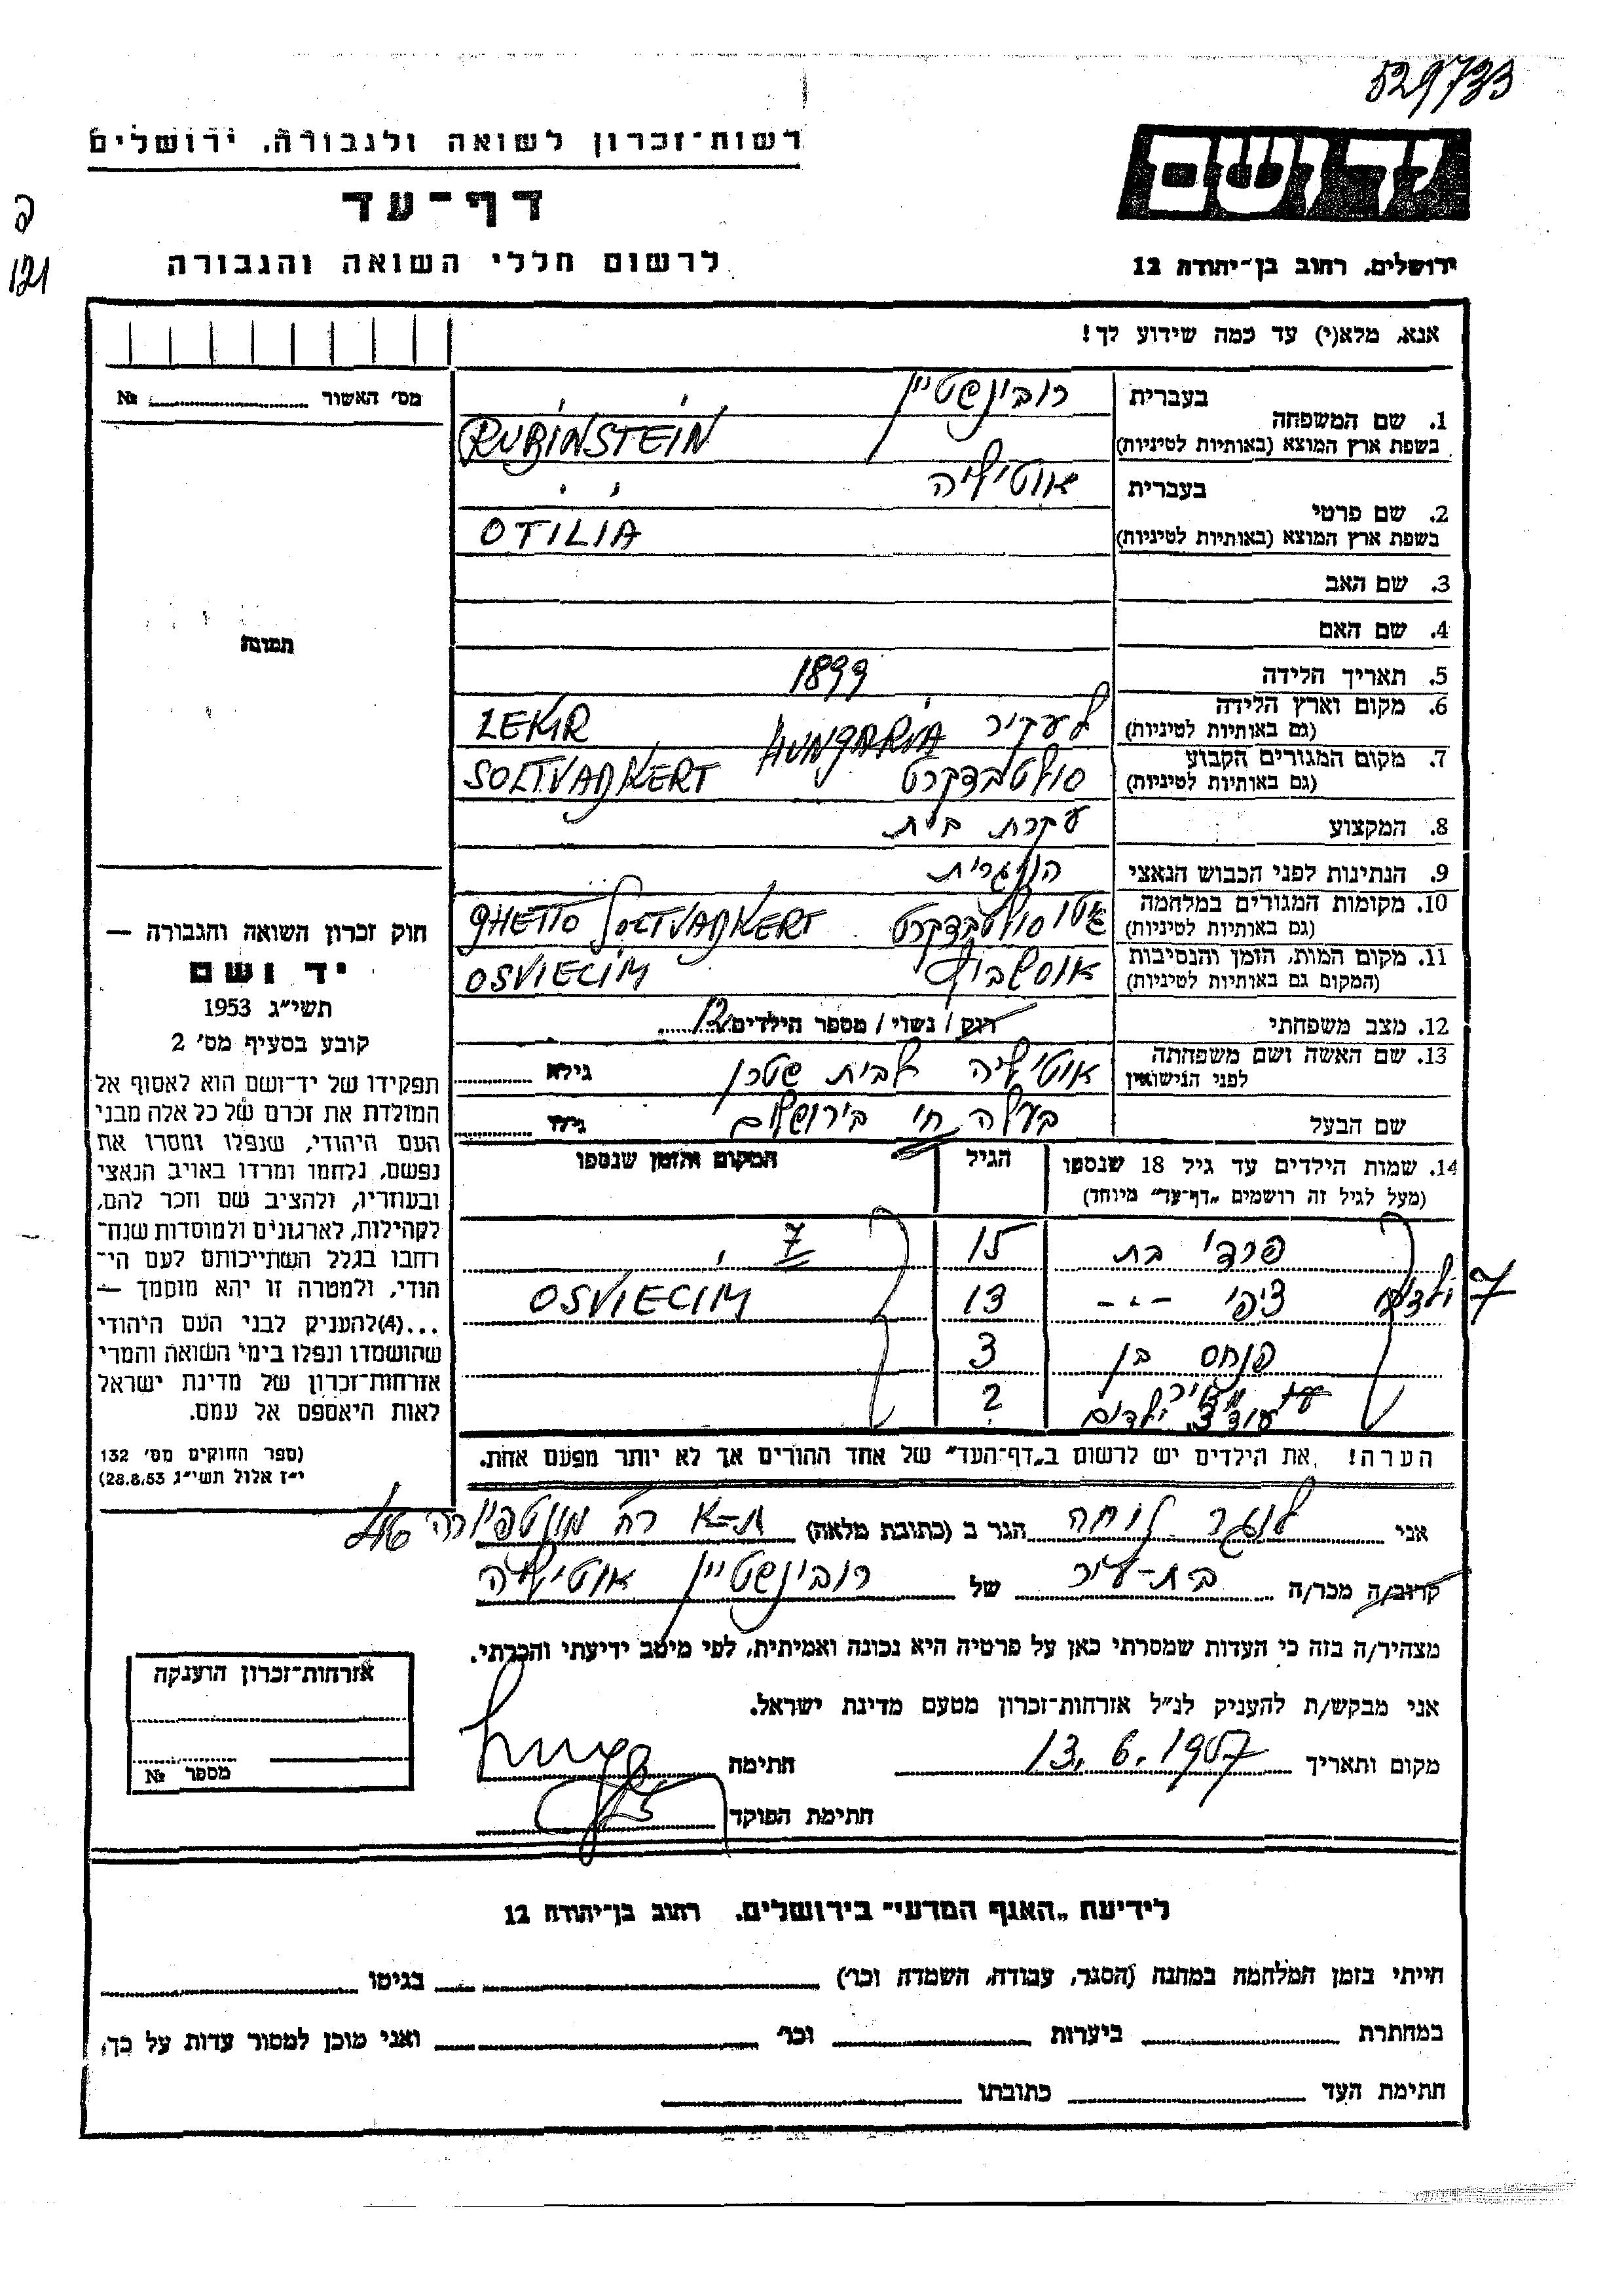 529733
רשות־זכרון לשואה ולגבורה, ירושלים
יד ושם
דף־עד
לרשום חללי השואה והגבורה
ירושלים, רחוב בן־יהודה 12
121
אנא, מלא(י) עד כמה שידוע לך!
מס' האשור № 
תמונה
1. שם המשפחה בעברית רובינשטיין
בשפת ארץ המוצא (באותיות לטיניות) RUBINSTEIN
2. שם פרטי בעברית אוטיליה
בשפת ארץ המוצא (באותיות לטיניות) OTILIA
3. שם האב
4. שם האם
5. תאריך הלידה 1899
6. מקום וארץ הלידה (גם באותיות לטיניות) לעקיר HUNGARIA LEKIR
7. מקום המגורים הקבוע (גם באותיות לטיניות) סולטבדקרט SOLTVADKERT
8. המקצוע עקרת בית
9. הנתינות לפני הכבוש הנאצי הונגרית
10. מקומות המגורים במלחמה (גם באותיות לטיניות) גטו סולטבדקרט GHETTO SOLTVADKERT
11. מקום המות, הזמן והנסיבות (המקום גם באותיות לטיניות) אושביץ OSVIECIM
12. מצב משפחתי רוק / נשוי / מספר הילדים 12
13. שם האשה ושם משפחתה לפני הנישואין אוטיליה לבית שטרן גילא
שם הבעל בעלה חי בירושלים גילו
14. שמות הילדים עד גיל 18 שנספו הגיל המקום והזמן שנספו
(מעל לגיל זה רושמים „דף־עד" מיוחד)
פרדי בת 15 7
7 ילדים ציפי -"- 13 OSVIECIM
פנחס בן 3
עוד 3 ילדים 2
הערה! את הילדים יש לרשום ב„דף־העד" של אחד ההורים אך לא יותר מפעם אחת.
חוק זכרון השואה והגבורה —
יד ושם
תשי"ג 1953
קובע בסעיף מס' 2
תפקידו של יד־ושם הוא לאסוף אל
המולדת את זכרם של כל אלה מבני
העם היהודי, שנפלו ומסרו את
נפשם, נלחמו ומרדו באויב הנאצי
ובעוזריו, ולהציב שם וזכר להם,
לקהילות, לארגונים ולמוסדות שנח־
רחבו בגלל השתייכותם לעם הי־
הודי, ולמטרה זו יהא מוסמך —
...(4) להעניק לבני העם היהודי
שהושמדו ונפלו בימי השואה והמרי
אזרחות־זכרון של מדינת ישראל
לאות היאספם אל עמם.
(ספר החוקים מס' 132
י"ז אלול תשי"ג 28.8.53)
אני הגר ב (כתובת מלאה) ת-א רח' מונטפיורה
קרוב/ה מכר/ה בת-עיר של רובינשטיין אוטיליה
מצהיר/ה בזה כי העדות שמסרתי כאן על פרטיה היא נכונה ואמיתית, לפי מיטב ידיעתי והכרתי.
אני מבקש/ת להעניק לנ"ל אזרחות־זכרון מטעם מדינת ישראל.
מקום ותאריך 13.6.1957 חתימה
חתימת הפוקד
אזרחות־זכרון הוענקה
מספר №
לידיעת „האגף המדעי" בירושלים, רחוב בן־יהודה 12
הייתי בזמן המלחמה במחנה (הסגר, עבודה, השמדה וכו') בגיטו
במחתרת ביערות וכו' ואני מוכן למסור עדות על כך.
חתימת העד כתובתו